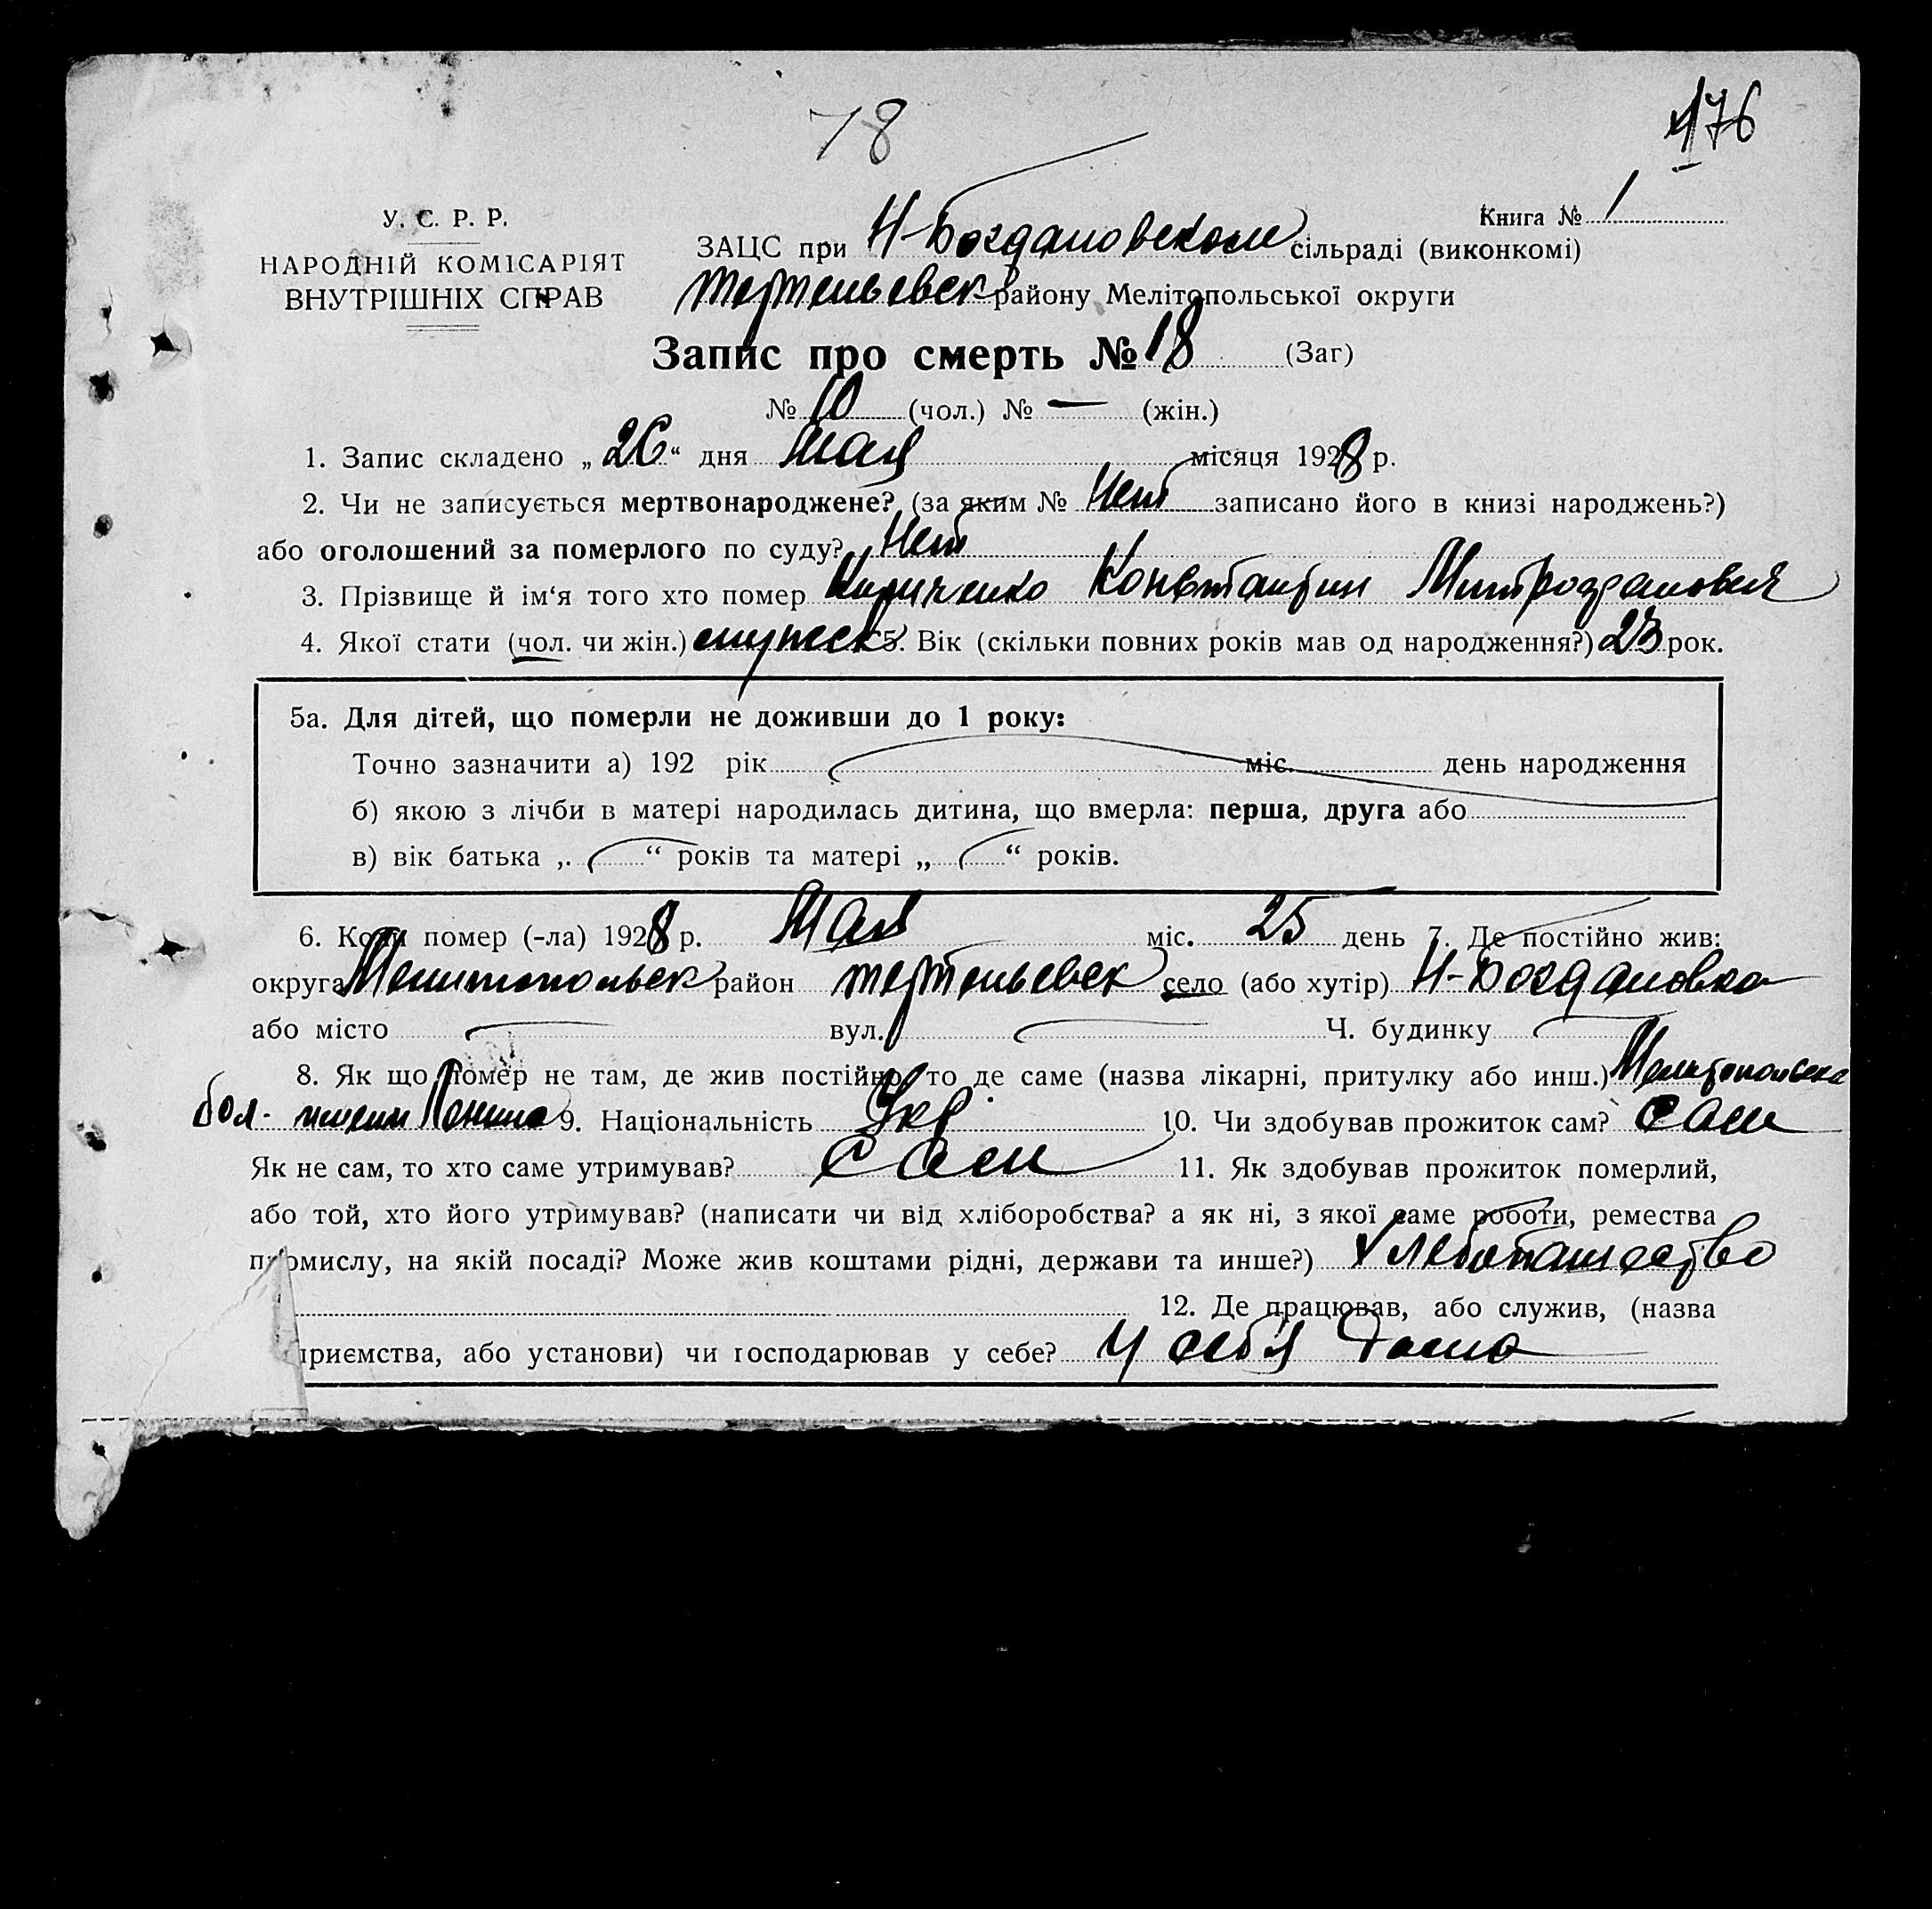 78
176
У. С. Р. Р.
НАРОДНІЙ КОМІСАРІЯТ
ВНУТРІШНІХ СПРАВ
Книга № 1
ЗАЦС при Н-Богдановском сільраді (виконкомі)
Терпеньевск району Мелітопольської округи
Запис про смерть № 18 (Заг)
№ 10 (чол.) № — (жін.)
1. Запис складено „ 26 “ дня Мая місяця 1928 р.
2. Чи не записується мертвонароджене? (за яким № Нет записано його в книзі народжень?)
або оголошений за померлого по суду? Нет
3. Прізвище й ім‘я того хто помер Кириченко Константин Митрофанович
4. Якої стати (чол. чи жін.) мужск 5. Вік (скільки повних років мав од народження?) 23 рок.
5а. Для дітей, що померли не доживши до 1 року:
Точно зазначити а) 192 рік міс. день народження
б) якою з лічби в матері народилась дитина, що вмерла: перша, друга або
в) вік батька „ “ років та матері „ “ років.
6. Коли помер (-ла) 1928 р. Мая міс. 25 день 7. Де постійно жив:
округа Мелитопольск район Терпеньевск село (або хутір) Н-Богдановка
або місто вул. Ч. будинку
8. Як що помер не там, де жив постійно, то де саме (назва лікарні, притулку або инш.) Мелитопольска
бол. имени Ленина 9. Національність Укр. 10. Чи здобував прожиток сам? Сам
Як не сам, то хто саме утримував? Сам 11. Як здобував прожиток померлий,
або той, хто його утримував? (написати чи від хліборобства? а як ні, з якої саме роботи, ремества
промислу, на якій посаді? Може жив коштами рідні, держави та инше?) Хлебопашество
12. Де працював, або служив, (назва
приємства, або установи) чи господарював у себе? У себя дома